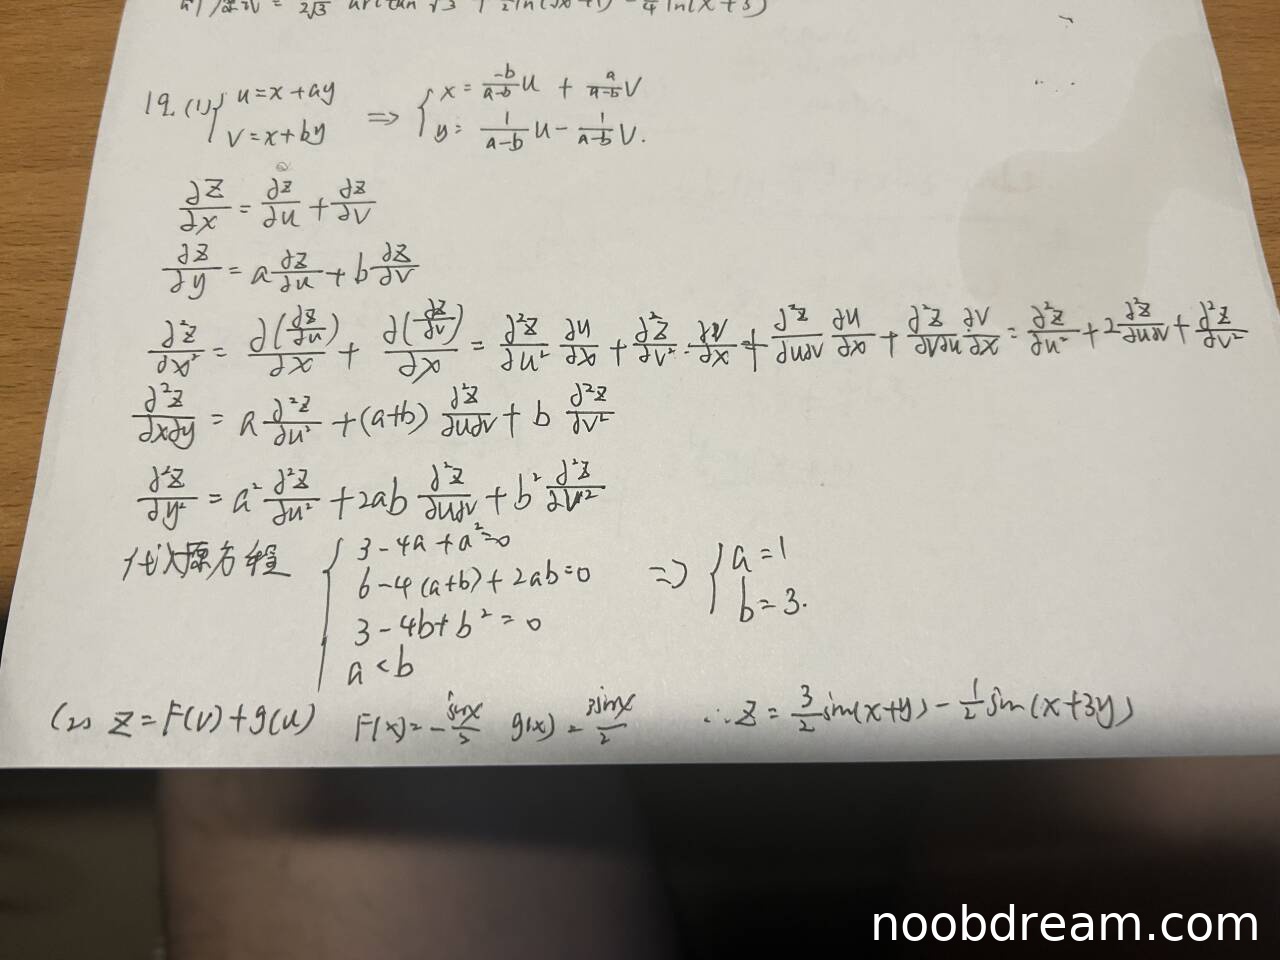 19. (1) { u=x+ay v=x+by ⇒ { x= -b/(a-b) u + a/(a-b) v y= 1/(a-b) u - 1/(a-b) v.
∂z/∂x = ∂z/∂u + ∂z/∂v
∂z/∂y = a ∂z/∂u + b ∂z/∂v
∂²z/∂x² = ∂(∂z/∂u)/∂x + ∂(∂z/∂v)/∂x = ∂²z/∂u² ∂u/∂x + ∂²z/∂v² · ∂v/∂x + ∂²z/∂u∂v ∂u/∂x + ∂²z/∂v∂u ∂v/∂x = ∂²z/∂u² + 2 ∂²z/∂u∂v + ∂²z/∂v²
∂²z/∂x∂y = a ∂²z/∂u² + (a+b) ∂²z/∂u∂v + b ∂²z/∂v²
∂²z/∂y² = a² ∂²z/∂u² + 2ab ∂²z/∂u∂v + b² ∂²z/∂v²
代入原方程 { 3-4a+a²=0 6-4(a+b)+2ab=0 3-4b+b²=0 a<b ⇒ { a=1 b=3.
(2) z=F(v)+g(u) F(x)=-sinx/2 g(x)=3sinx/2 ∴z=3/2 sin(x+y)-1/2 sin(x+3y)
noobdream.com